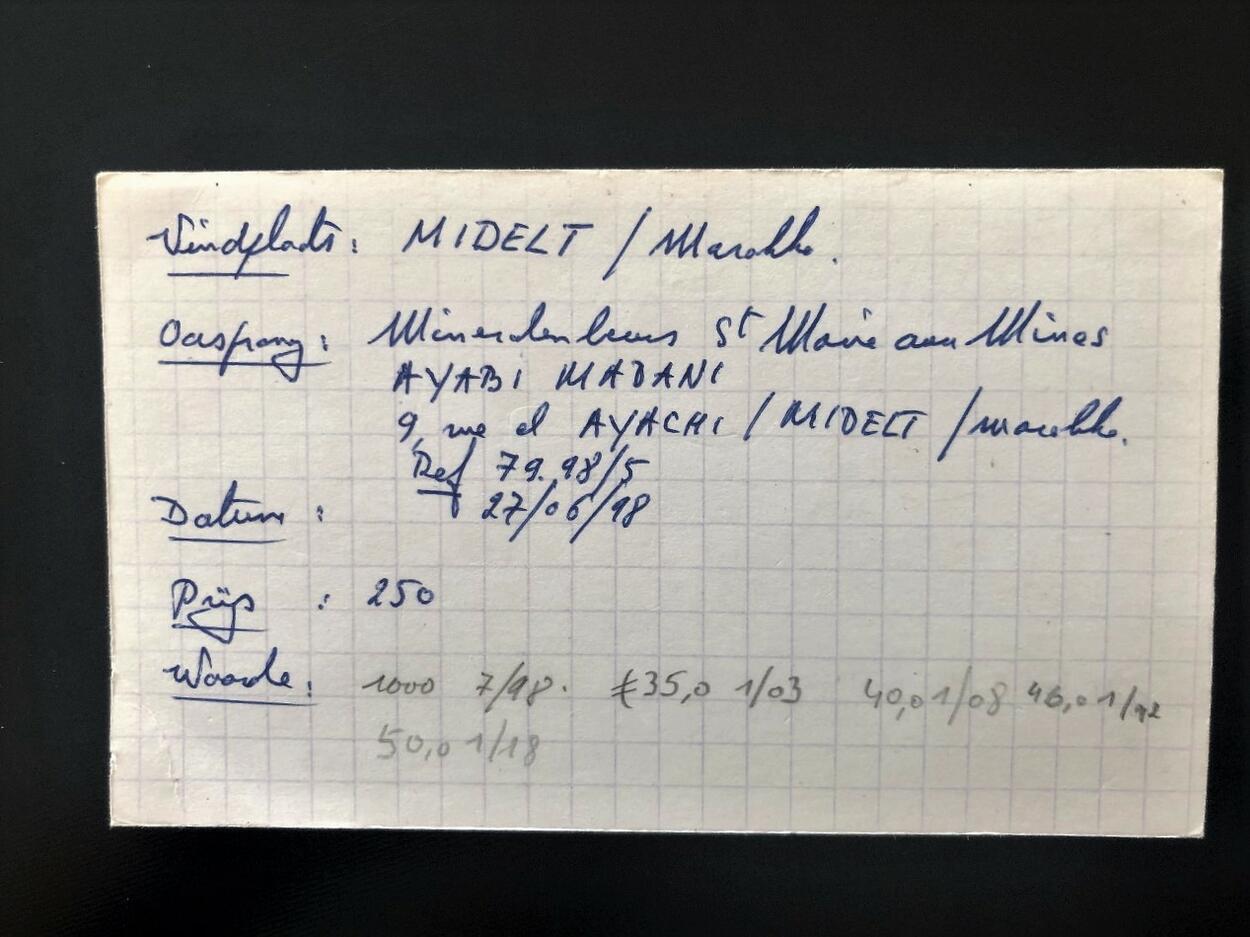 Vindplaats : MIDELT / Marokko.
Oorsprong : Mineralenbeurs St Marie aux Mines
AYABI MADANI
9, rue el AYACHI / MIDELT / Marokko.
Ref 79.98/5
Datum : 27/06/98
Prijs : 250
Waarde : 1000 7/98. €35,0 1/03 40,0 1/08 46,0 1/12
50,0 1/18